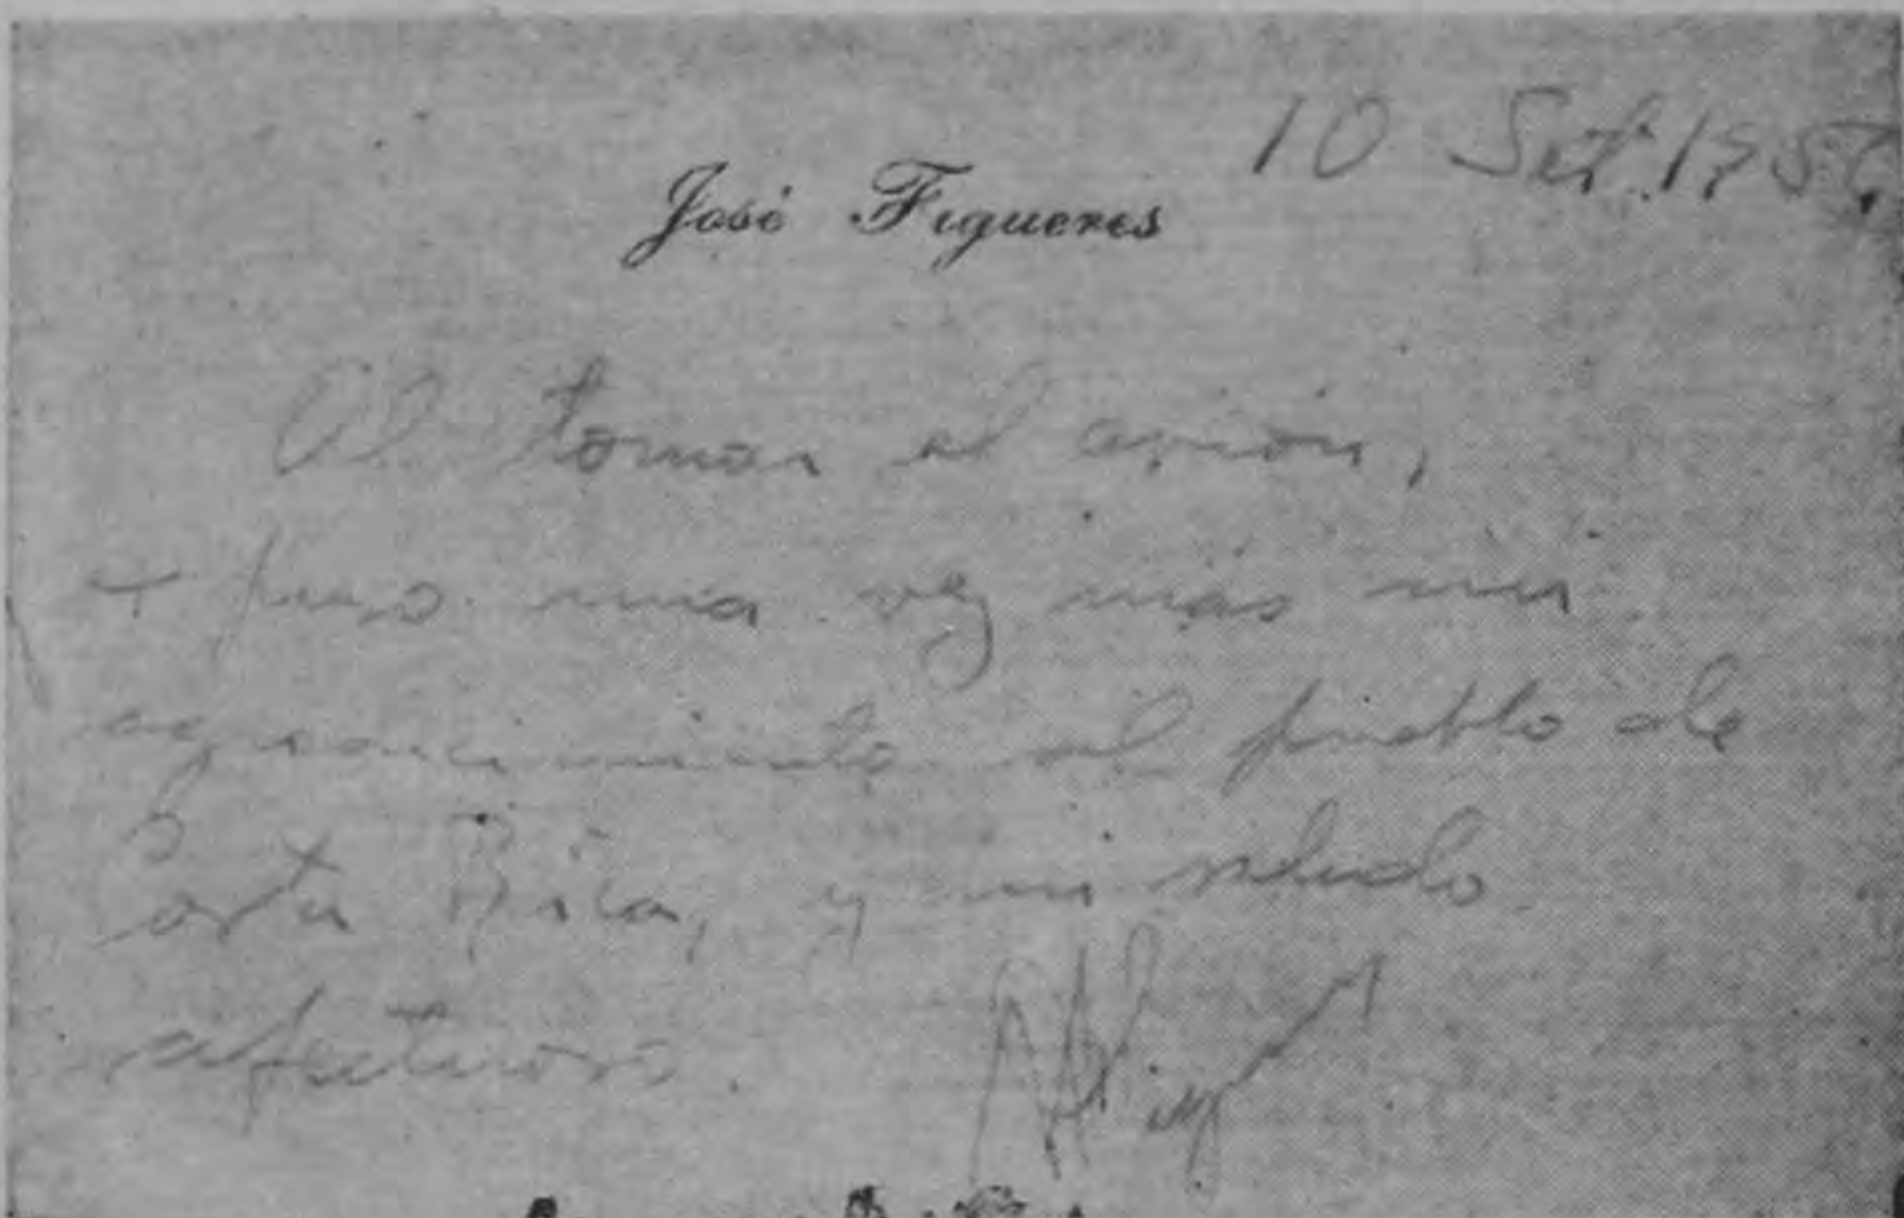 10 Set. 195
José Figueres
Al tomar el avión,
expreso una vez más mi
agradecimiento al pueblo de
Costa Rica, y mi saludo
afectuoso.